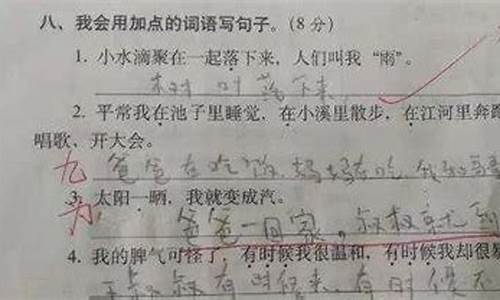 八、我会用加点的词语写句子。(8分)
1. 小水滴聚在一起落下来，人们叫我“雨”。
树叶落下来
2. 平常我在池子里睡觉，在小溪里散步，在江河里奔跑
唱歌、开大会。
爸爸在吃饭 妈妈在吃
3. 太阳一晒，我就变成汽。
爸爸一回家，叔叔就
4. 我的脾气可怪了，有时候我很温和，有时候我却很暴
叔叔有时候来 有时候不